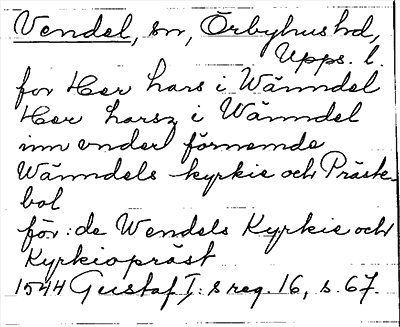 Vendel, sn, Örbyhus hd,
Upps. l.
for Her hars i Wänndel
Her harsz i Wänndel
inn vnderl förnemde
Wänndels kyrkie och Präste-
bol
för: de Wendels Kyrkie och
Kyrkiopräst
1544 Gustaf I:s reg. 16, s. 67.